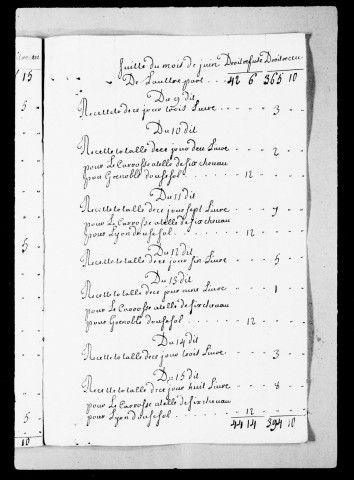 15
5
5
5
5
10
Suitte du mois de juin Droit refuse Droit recu
De Lauttre part . . . . 42 6 365 10
Du 9 dit
Recette de ce jour trois Livre . . . . 3
Du 10 dit
Recette totalle de ce jour deu Livre . . 2
pour Le Carrosse atelle de six cheuau
pour Grenoble douse sol . . . 12
Du 11 dit
Recette totalle de ce jour sept Livre . . 7
pour Le Carrosse atelle de six cheuau
pour Lyon douse sol . . . . 12
Du 12 dit
Recette totalle de ce jour sin Livre . . 5
Du 13 dit
Recette totalle de ce jour Livre . . 1
pour Le Carrosse atelle de six cheuau
pour Grenoble douse sol . . . 12
Du 14 dit
Recette totalle de ce jour trois Livre . . 3
Du 15 dit
Recette totalle de ce jour huit Livre . . 8
pour Le Carrosse atelle de six cheuau
pour Lyon douse sol . . . . 12
44 14 394 10